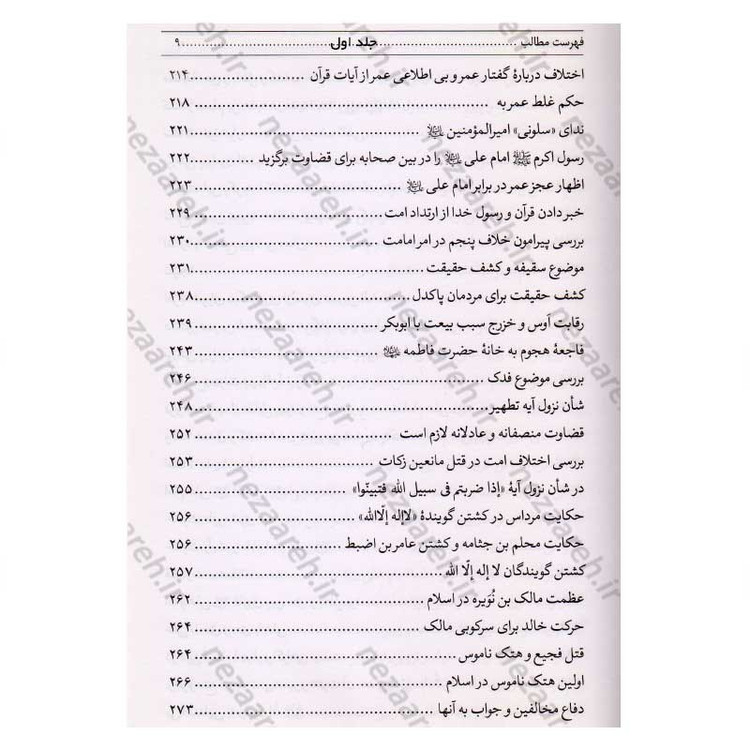 فهرست مطالب ........ جلد اول ........ ۹
اختلاف دربارهٔ گفتار عمر و بی اطلاعی عمر از آیات قرآن ........ ۲۱۴
حکم غلط عمر به ........ ۲۱۸
ندای «سلونی» امیرالمؤمنین علیه‌السلام ........ ۲۲۱
رسول اکرم ﷺ امام علی علیه‌السلام را در بین صحابه برای قضاوت برگزید ........ ۲۲۲
اظهار عجز عمر در برابر امام علی علیه‌السلام ........ ۲۲۳
خبر دادن قرآن و رسول خدا از ارتداد امت ........ ۲۲۹
بررسی پیرامون خلاف پنجم در امر امامت ........ ۲۳۰
موضوع سقیفه و کشف حقیقت ........ ۲۳۱
کشف حقیقت برای مردمان پاکدل ........ ۲۳۸
رقابت اَوس و خزرج سبب بیعت با ابوبکر ........ ۲۳۹
فاجعهٔ هجوم به خانهٔ حضرت فاطمه علیهاالسلام ........ ۲۴۳
بررسی موضوع فدک ........ ۲۴۶
شأن نزول آیه تطهیر ........ ۲۴۸
قضاوت منصفانه و عادلانه لازم است ........ ۲۵۲
بررسی اختلاف امت در قتل مانعین زکات ........ ۲۵۳
در شأن نزول آیهٔ «إذا ضربتم فی سبیل الله فتبیّنوا» ........ ۲۵۵
حکایت مرداس در کشتن گویندهٔ «لاإله إلّاالله» ........ ۲۵۶
حکایت محلم بن جثامه و کشتن عامر بن اضبط ........ ۲۵۶
کشتن گویندگان لا إله إلّا الله ........ ۲۵۷
عظمت مالک بن نُوَیره در اسلام ........ ۲۶۲
حرکت خالد برای سرکوبی مالک ........ ۲۶۴
قتل فجیع و هتک ناموس ........ ۲۶۴
اولین هتک ناموس در اسلام ........ ۲۶۶
دفاع مخالفین و جواب به آنها ........ ۲۷۳
nezaareh.ir